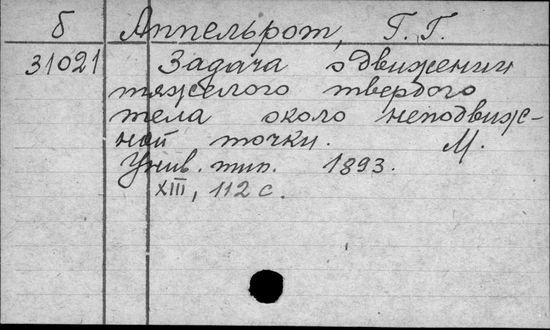 б Аппельрот, Г. Г.
31021 Задача о движении
тяжелого твердого
тела около неподвиж-
ной точки. М.
Унив. тип. 1893.
XIII, 112 с.